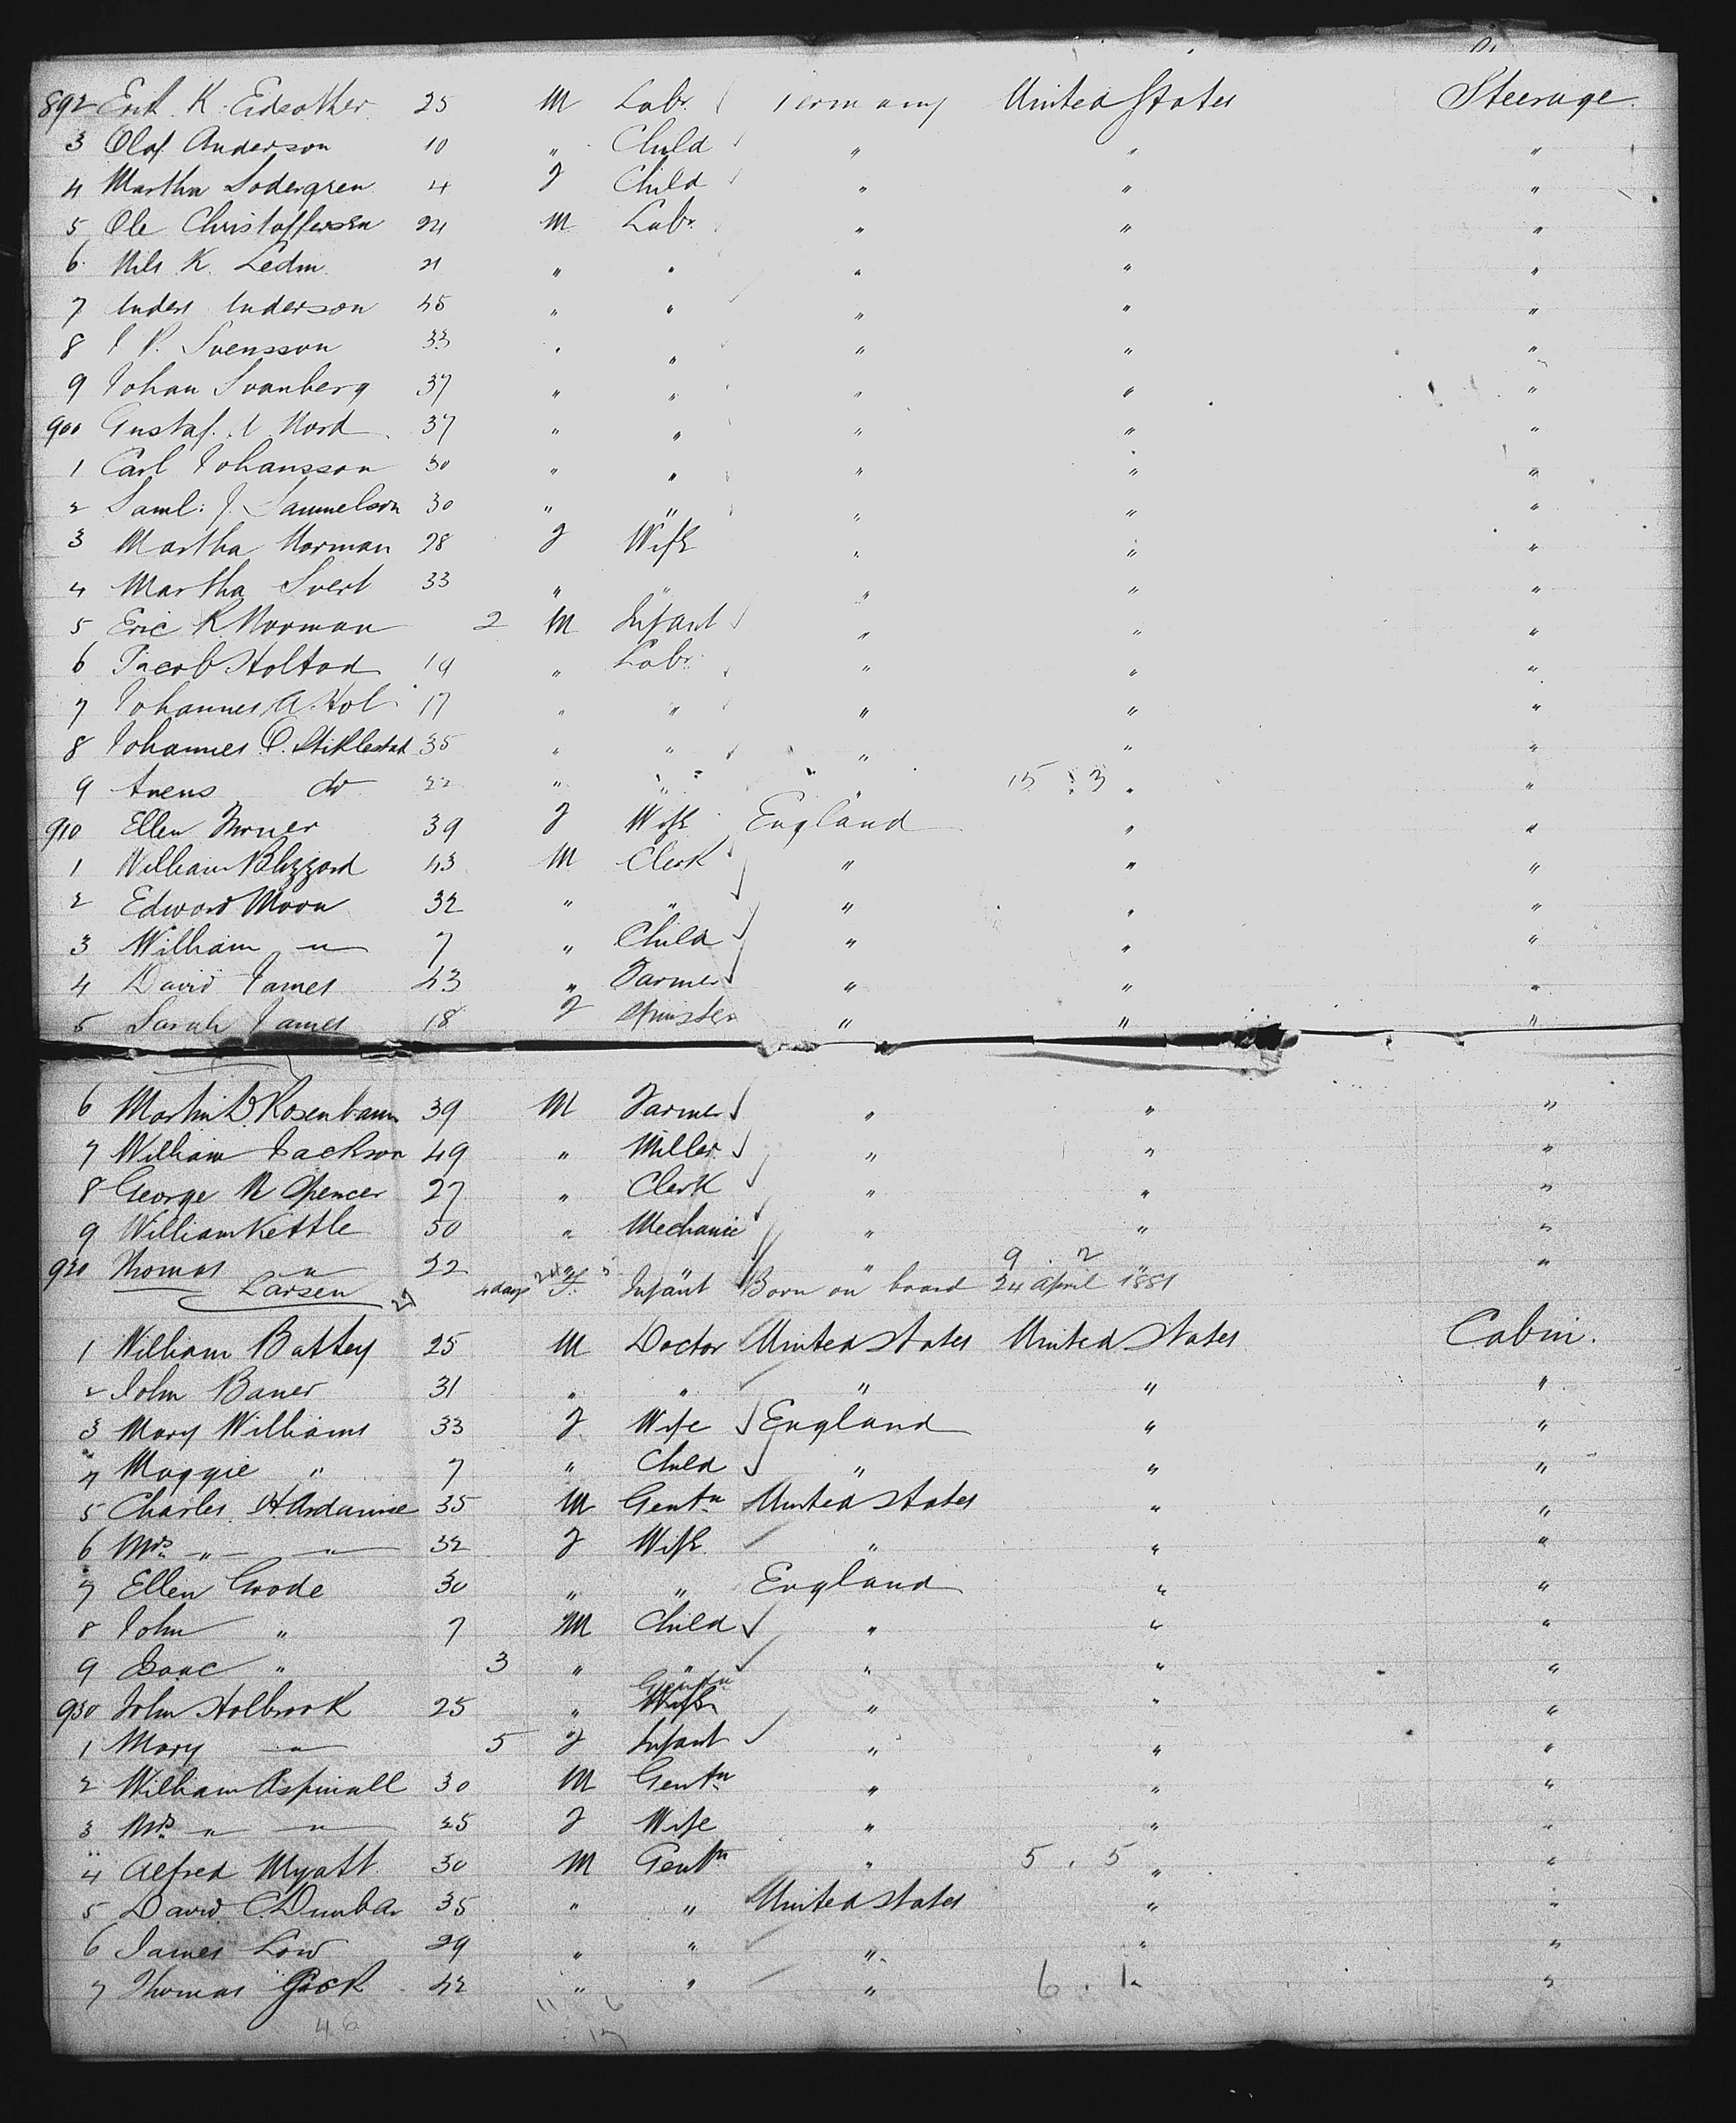 892 Erik K. Eidsother 25 M Labr. Germany United States Steerage.
3 Olaf Anderson 10 " Child " " "
4 Martha Sodergren 4 F Child " " "
5 Ole Christoffersen 24 M Labr. " " "
6 Nils K. Ledin 21 " " " " "
7 Anders Anderson 45 " " " " "
8 J P. Svensson 33 " " " " "
9 Johan Svanberg 37 " " " " "
900 Gustaf. A Nord 37 " " " " "
1 Carl Johansson 30 " " " " "
2 Saml: J. Samuelson 30 " " " " "
3 Martha Norman 28 F Wife " " "
4 Martha 33 " " " " "
5 Eric K. Norman 2 M Infant " " "
6 Jacob Holtad 19 " Labr. " " "
7 Johannes A. Hol 17 " " " " "
8 Johannes O. Stiklestad 35 " " " " "
9 do 22 " " " 15 : 3 " "
910 Ellen 39 F Wife England " "
1 William Blizzard 43 M Clerk " " "
2 Edward Moon 32 " " " " "
3 William " 7 " Child " " "
4 David James 43 " Farmer " " "
5 Sarah James 18 F Spinster " " "
6 Martin D. Rosenbaum 39 M Farmer " " "
7 William Jackson 49 " Miller " " "
8 George M Spencer 27 " Clerk " " "
9 William Kettle 50 " Mechanic " " "
920 Thomas " 22 " " " 9 . 2 " "
Larsen 4 days F. Infant Born on board 24 April 1881
1 William Battey 25 M Doctor United States United States Cabin.
2 John Baner 31 " " " " "
3 Mary Williams 33 F Wife England " "
4 Maggie " 7 " Child " " "
5 Charles H. Ardamise 35 M Gentn United States " "
6 Mrs " " 32 F Wife " " "
7 Ellen Goode 30 " " England " "
8 John " 7 M Child " " "
9 Isaac " 3 " " " " "
Gentn
930 John Holbrook 25 " Wife " " "
1 Mary " 5 F Infant " " "
2 William Aspinall 30 M Gentn " " "
3 Mrs " " 25 F Wife " " "
4 Alfred Myatt 30 M Gentn " 5 . 5 " "
5 David C. Dunbar 35 " " United States " "
6 James Low 29 " " " " "
7 Thomas 42 " " " 6 . 1. "
46 11 6
17